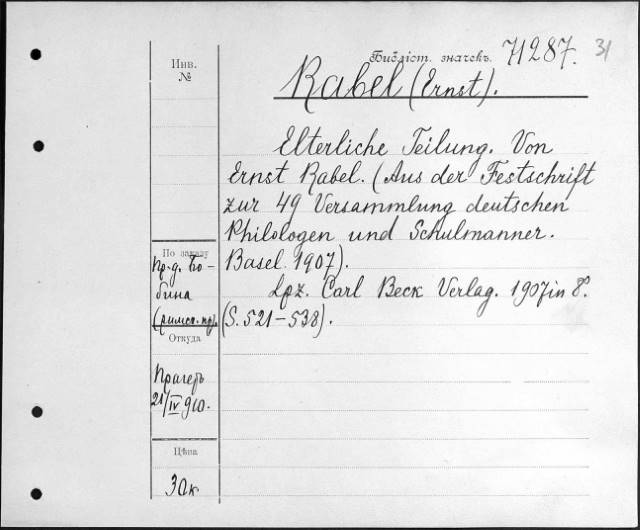 Инв.
№
Библіот. значекъ. 71287. 31
Rabel (Ernst).
Elterliche Teilung. Von
Ernst Rabel. (Aus der Festschrift
zur 49 Versammlung deutschen
Philologen und Schulmanner.
Basel. 1907).
Lpz. Carl Beck Verlag. 1907 in 8°.
(S. 521-538).
По заказу
Пр-д. Бо-
бина
(римск. пр).
Откуда
Прагеръ
21/IV 910.
Цѣна
30к